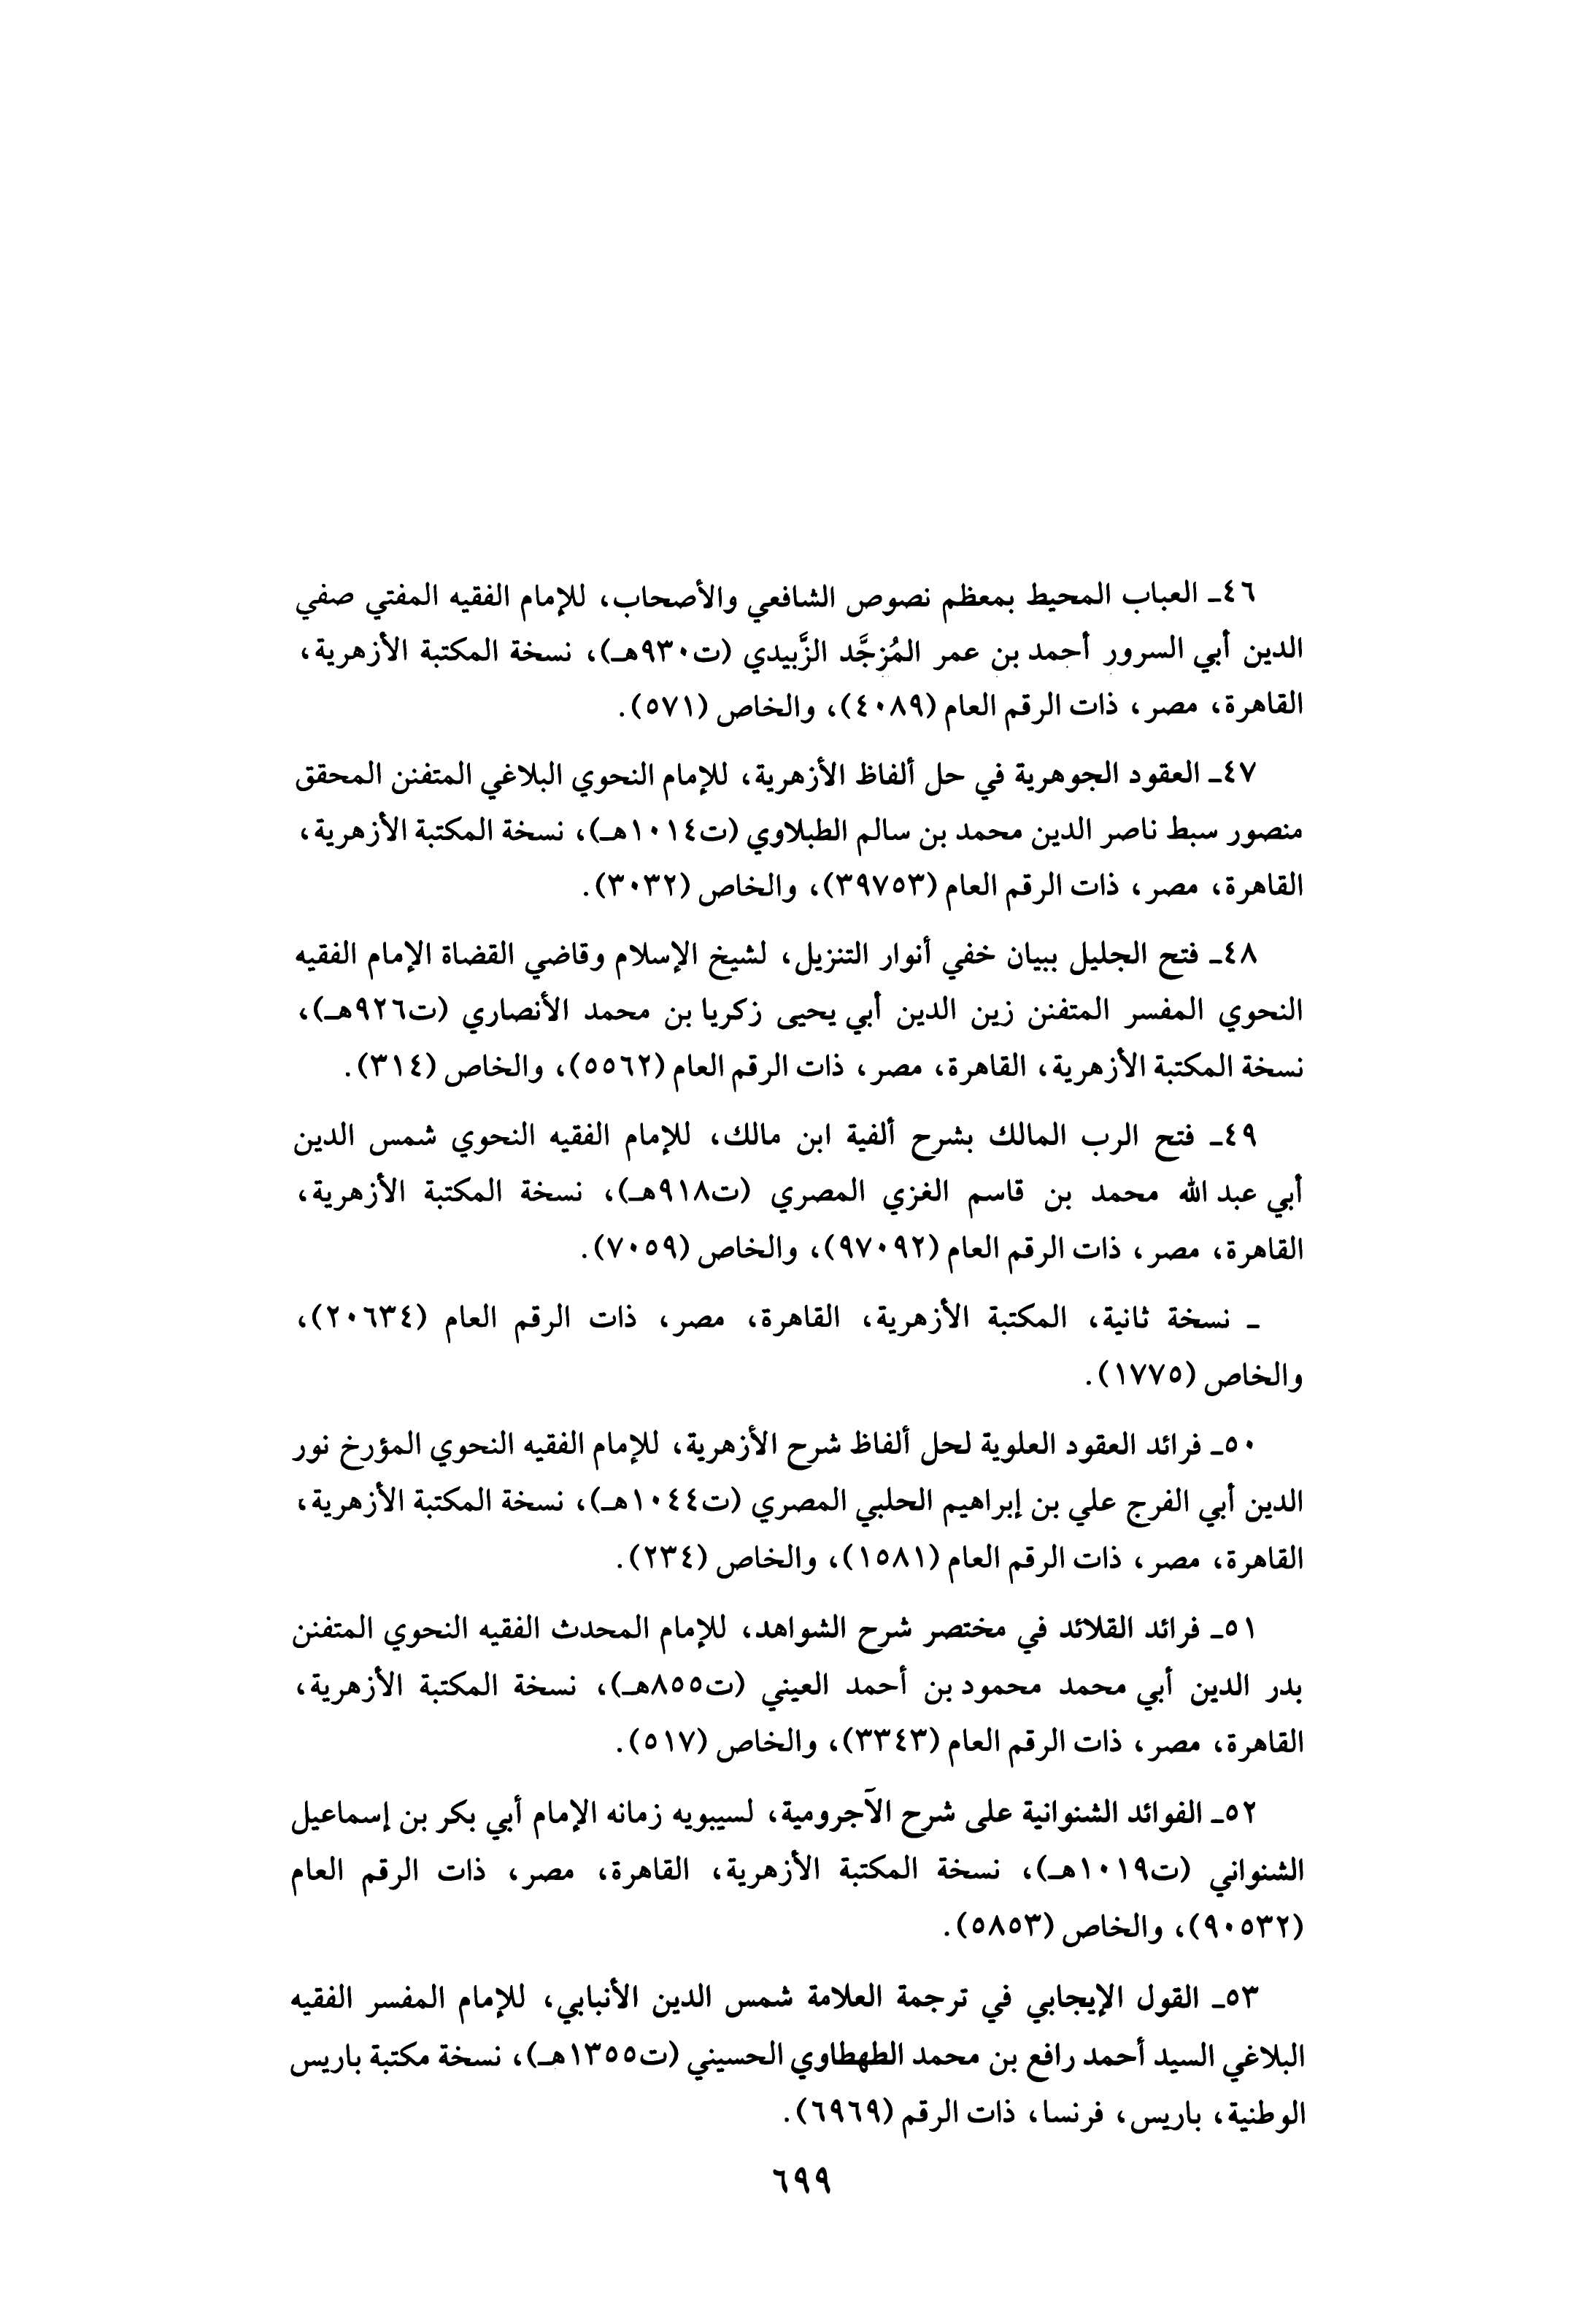 ٤٦ـ العباب المحيط بمعظم نصوص الشافعي والأصحاب، للإمام الفقيه المفتي صفي
الدين أبي السرور أحمد بن عمر المُزجَّد الزَّبيدي (ت٩٣٠هـ)، نسخة المكتبة الأزهرية،
القاهرة، مصر، ذات الرقم العام (٤٠٨٩)، والخاص (٥٧١).
٤٧ـ العقود الجوهرية في حل ألفاظ الأزهرية، للإمام النحوي البلاغي المتفنن المحقق
منصور سبط ناصر الدين محمد بن سالم الطبلاوي (ت١٠١٤هـ)، نسخة المكتبة الأزهرية،
القاهرة، مصر، ذات الرقم العام (٣٩٧٥٣)، والخاص (٣٠٣٢).
٤٨ـ فتح الجليل ببيان خفي أنوار التنزيل، لشيخ الإسلام وقاضي القضاة الإمام الفقيه
النحوي المفسر المتفنن زين الدين أبي يحيى زكريا بن محمد الأنصاري (ت٩٢٦هـ)،
نسخة المكتبة الأزهرية، القاهرة، مصر، ذات الرقم العام (٥٥٦٢)، والخاص (٣١٤).
٤٩ـ فتح الرب المالك بشرح ألفية ابن مالك، للإمام الفقيه النحوي شمس الدين
أبي عبد الله محمد بن قاسم الغزي المصري (ت٩١٨هـ)، نسخة المكتبة الأزهرية،
القاهرة، مصر، ذات الرقم العام (٩٧٠٩٢)، والخاص (٧٠٥٩).
ـ نسخة ثانية، المكتبة الأزهرية، القاهرة، مصر، ذات الرقم العام (٢٠٦٣٤)،
والخاص (١٧٧٥).
٥٠ـ فرائد العقود العلوية لحل ألفاظ شرح الأزهرية، للإمام الفقيه النحوي المؤرخ نور
الدين أبي الفرج علي بن إبراهيم الحلبي المصري (ت١٠٤٤هـ)، نسخة المكتبة الأزهرية،
القاهرة، مصر، ذات الرقم العام (١٥٨١)، والخاص (٢٣٤).
٥١ـ فرائد القلائد في مختصر شرح الشواهد، للإمام المحدث الفقيه النحوي المتفنن
بدر الدين أبي محمد محمود بن أحمد العيني (ت٨٥٥هـ)، نسخة المكتبة الأزهرية،
القاهرة، مصر، ذات الرقم العام (٣٣٤٣)، والخاص (٥١٧).
٥٢ـ الفوائد الشنوانية على شرح الآجرومية، لسيبويه زمانه الإمام أبي بكر بن إسماعيل
الشنواني (ت١٠١٩هـ)، نسخة المكتبة الأزهرية، القاهرة، مصر، ذات الرقم العام
(٩٠٥٣٢)، والخاص (٥٨٥٣).
٥٣ـ القول الإيجابي في ترجمة العلامة شمس الدين الأنبابي، للإمام المفسر الفقيه
البلاغي السيد أحمد رافع بن محمد الطهطاوي الحسيني (ت١٣٥٥هـ)، نسخة مكتبة باريس
الوطنية، باريس، فرنسا، ذات الرقم (٦٩٦٩).
٦٩٩